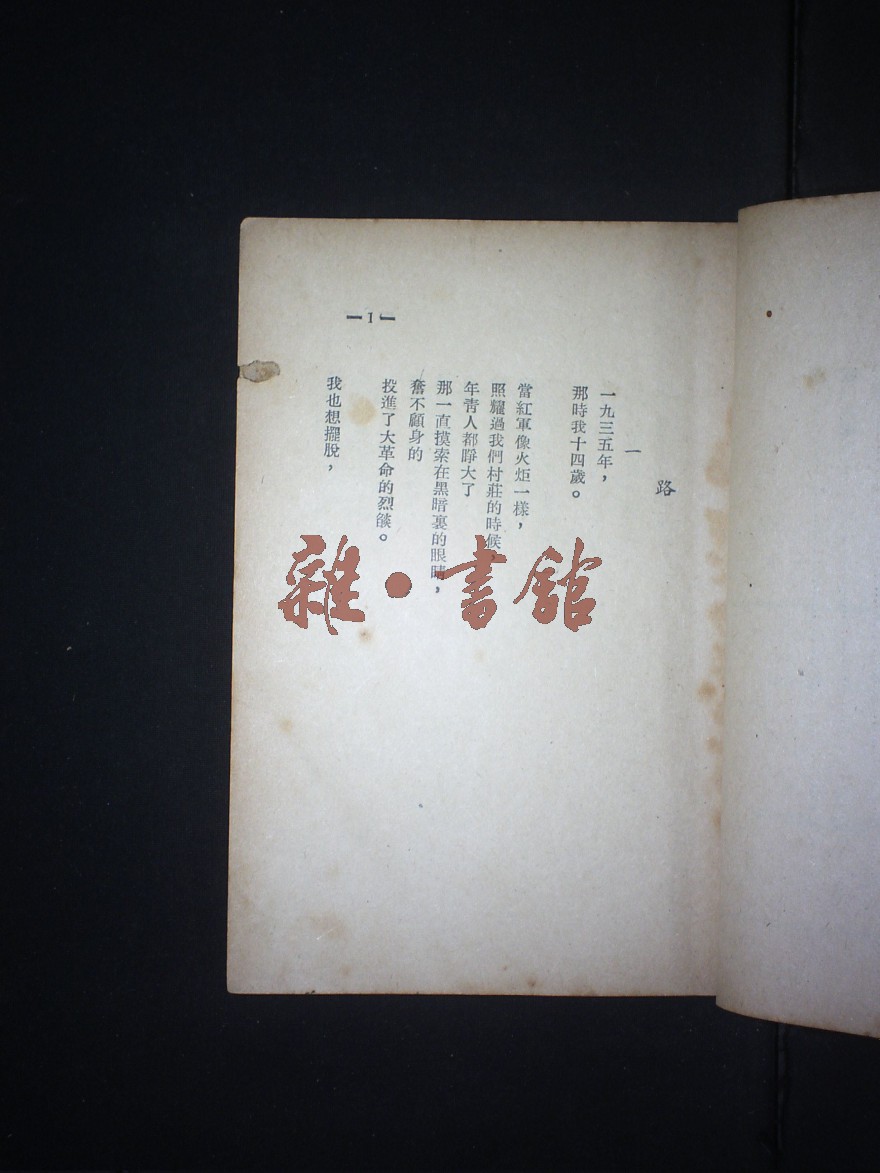 路
一
一九三五年，
那時我十四歲。
當紅軍像火炬一樣，
照耀過我們村莊的時候，
年青人都睜大了
那一直摸索在黑暗裏的眼睛，
奮不顧身的
投進了大革命的烈燄。
我也想擺脫，
—1—
雜•書館